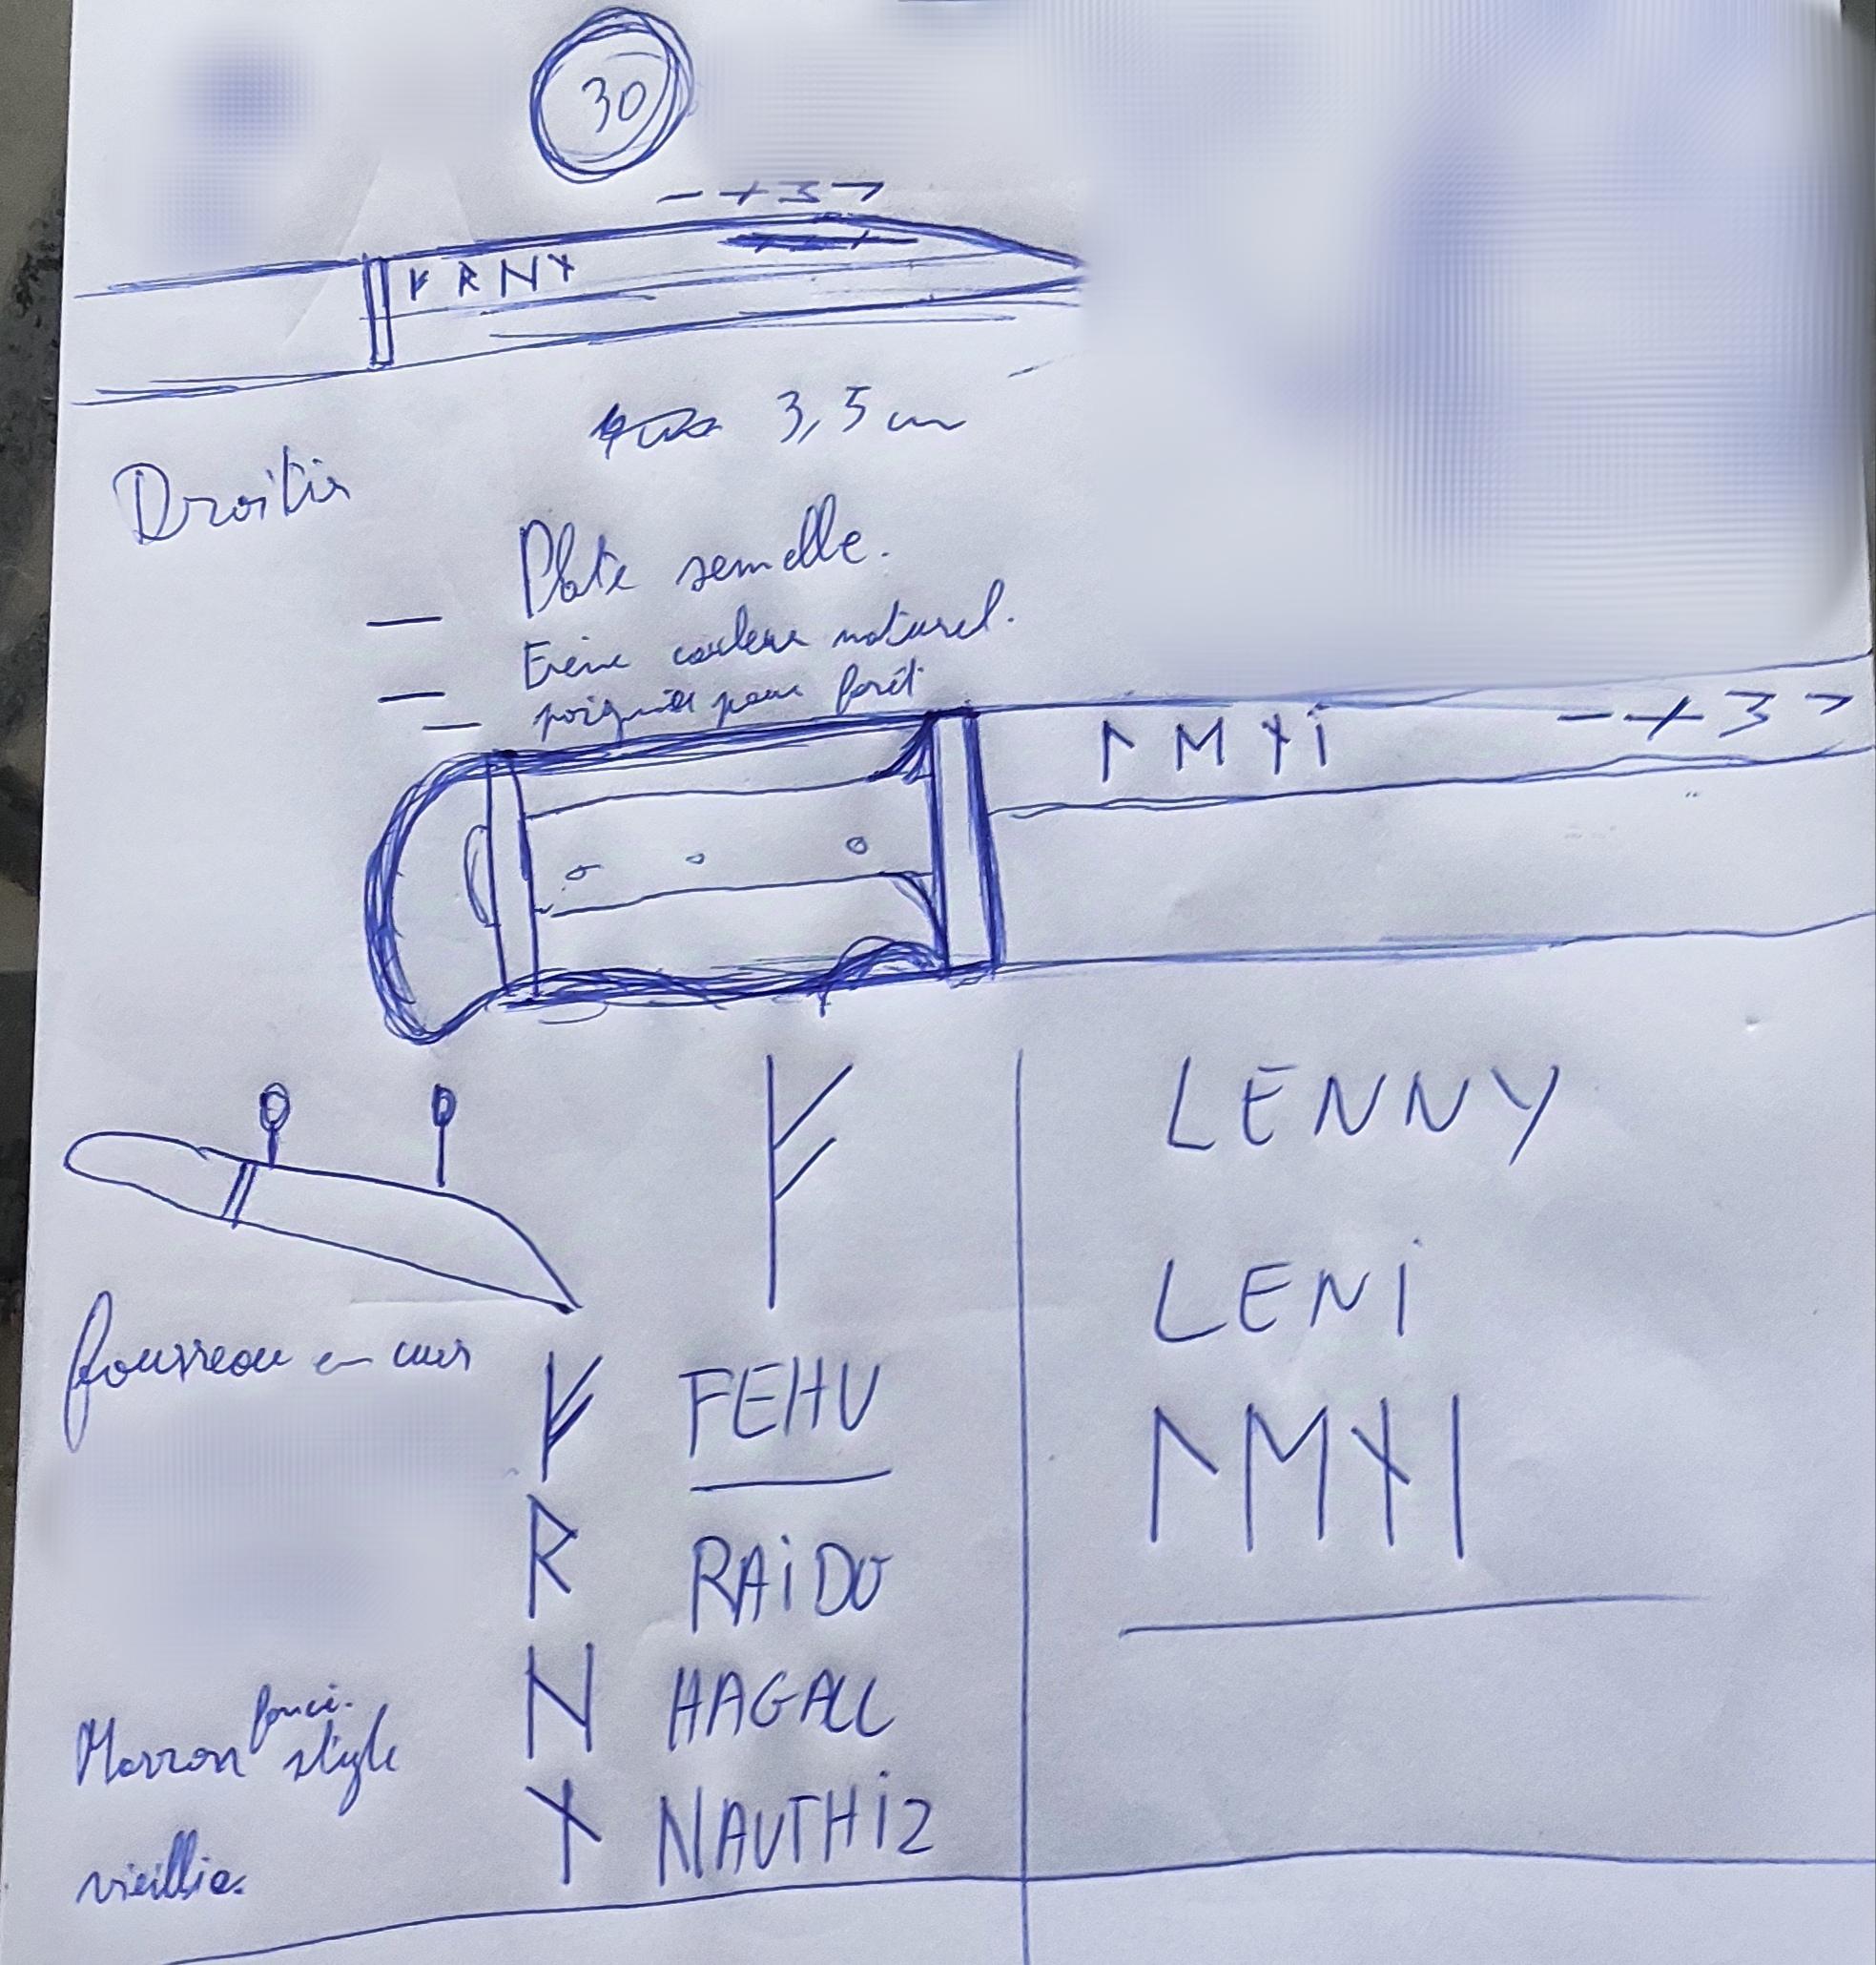 30
- + 3 >
ᚠ ᚱ ᚺ ᚾ
3,5 cm
Droitier
Plate semelle.
— Frêne couleur naturel.
— poignée pour forêt
ᛚ ᛖ ᚾ ᛁ - + 3 >
ᚠ
LENNY
LENi
fourreau en cuir
ᚠ FEHU
ᛚᛖᚾᛁ
ᚱ RAiDO
ᚺ HAGALL
Marron foncé.
style
vieillie.
ᚾ NAUTHiZ